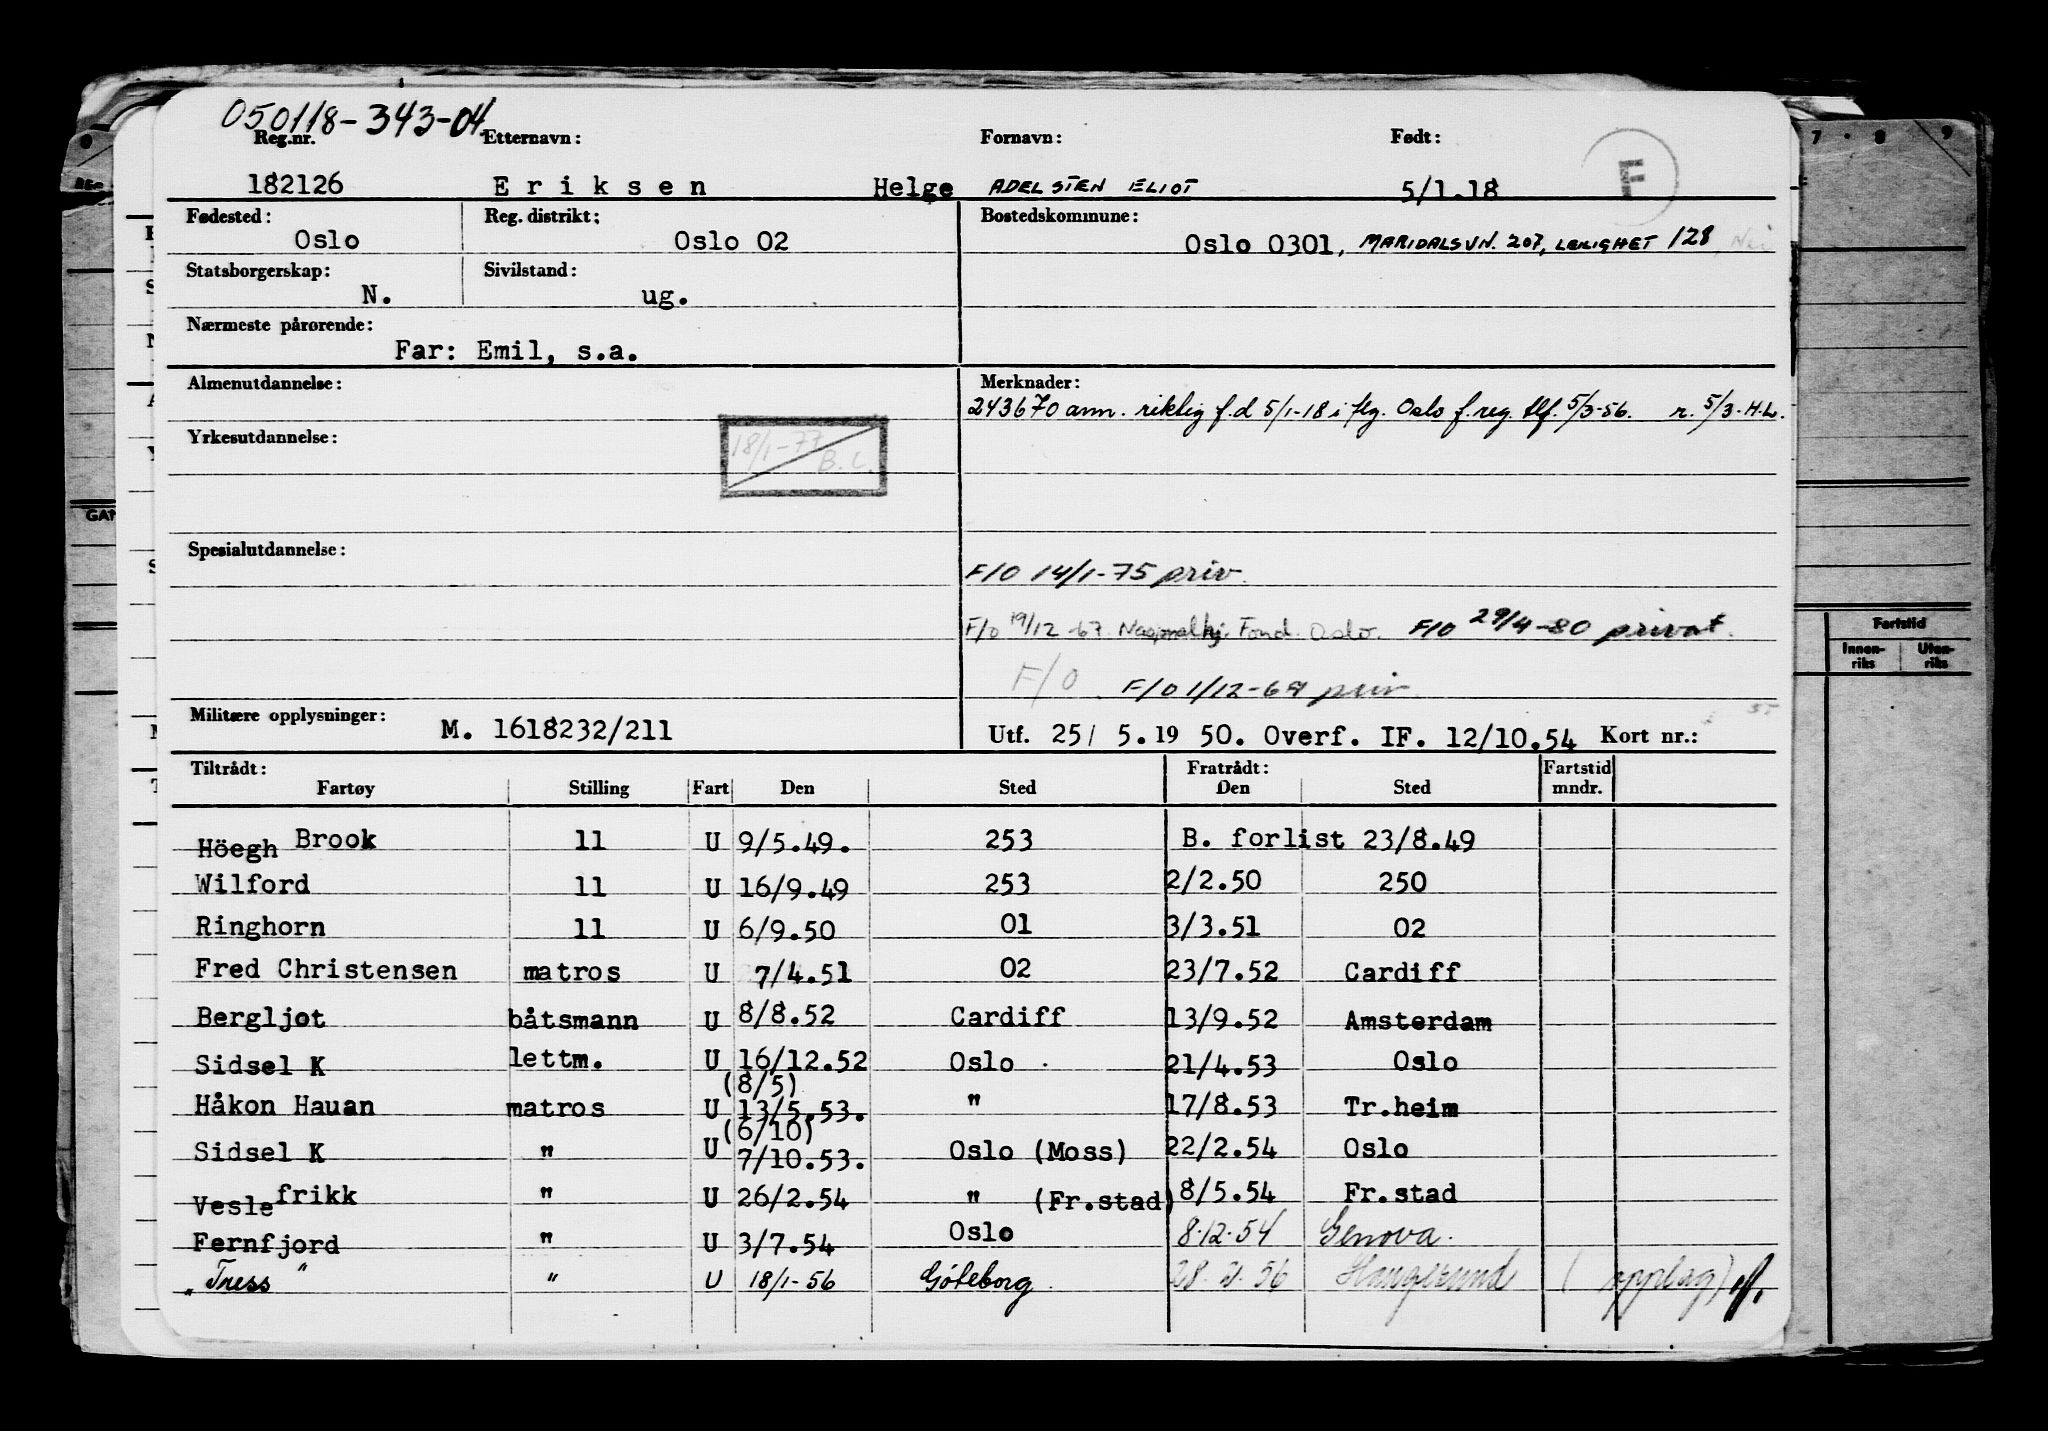 050118-343-04
Reg.nr. Etternavn: Fornavn: Født:
182126 Eriksen Helge ADELSTEN ELIOT 5/1.18 F
Fødested: Reg. distrikt: Bostedskommune:
Oslo Oslo 02 Oslo 0301, MARIDALSVN. 207, LEILIGHET 128
Statsborgerskap: Sivilstand:
N. ug.
Nærmeste pårørende:
Far: Emil, s.a.
Almenutdannelse: Merknader:
243670 ann. riktig f.d 5/1-18 i flg. Oslo f.reg. tlf. 5/3-56. r. 5/3. H.L.
Yrkesutdannelse:
18/1-77 B.L.
Spesialutdannelse:
F/O 14/1-75 priv.
F/O 19/12-67. Nasjonalhj. Fond. Oslo. F/O 29/4-80 privat.
F/O F/O 1/12-69 priv.
Militære opplysninger: M. 1618232/211 Utf. 25/ 5.19 50. Overf. IF. 12/10.54 Kort nr.:
Tiltrådt: Fratrådt: Fartstid
Fartøy Stilling Fart Den Sted Den Sted mndr.
Höegh Brook 11 U 9/5.49. 253 B. forlist 23/8.49
Wilford 11 U 16/9.49 253 2/2.50 250
Ringhorn 11 U 6/9.50 01 3/3.51 02
Fred Christensen matros U 7/4.51 02 23/7.52 Cardiff
Bergljot båtsmann U 8/8.52 Cardiff 13/9.52 Amsterdam
Sidsel K lettm. U 16/12.52 Oslo 21/4.53 Oslo
(8/5)
Håkon Hauan matros U 13/5.53. " 17/8.53 Tr.heim
(6/10)
Sidsel K " U 7/10.53. Oslo (Moss) 22/2.54 Oslo
Veslefrikk " U 26/2.54 " (Fr.stad) 8/5.54 Fr.stad
Fernfjord " U 3/7.54 Oslo 8.12.54 Genova.
"Tress" " U 18/1-56 Göteborg. 28. 2. 56 Haugesund (opplag)
7 8 9
Fartstid
Innen-riks Uten-riks